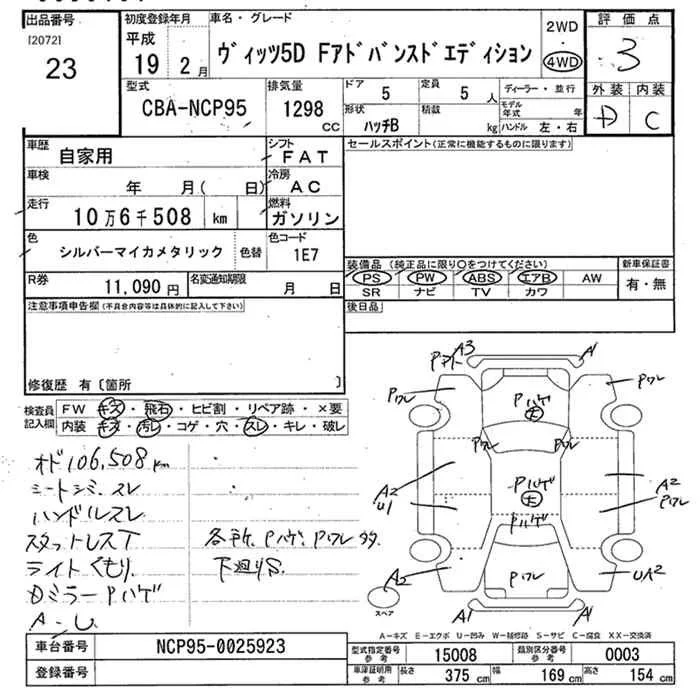 出品番号
[2072]
23
初度登録年月
平成
19 2月
車名・グレード
ヴィッツ5D Fアドバンスドエディション
2WD
・
4WD
評価点
3
型式
CBA-NCP95
排気量
1298
CC
ドア
5
定員
5人
形状
ハッチB
積載
kg
ディーラー・並行
モデル年式 年
ハンドル 左・右
外装 内装
D C
車歴
自家用
シフト
FAT
車検
年 月( 日)
冷房
AC
走行
10万6千508 km
燃料
ガソリン
色
シルバーマイカメタリック
色替
色コード
1E7
R券
11,090円
名変通知期限
月 日
セールスポイント(正常に機能するものに限ります)
装備品(純正品に限り○をつけてください)
PS PW ABS エアB AW
SR ナビ TV カワ
新車保証書
有・無
後日品
注意事項申告欄(不具合内容等は具体的に記入して下さい)
修復歴 有〔箇所 〕
検査員記入欄
FW キズ・飛石・ヒビ割・リペア跡・×要
内装 キズ・汚レ・コゲ・穴・スレ・キレ・破レ
オド106,508km
シートシミ、スレ
ハンドルスレ
スタットレスT
ライトくもり、
ドミラーPハゲ
A-U
各所、Pハゲ、Pワレ 多々
下廻りS
A3
A1
Pワレ
Pワレ
Pハゲ
大
Pワレ
Pワレ
A2
U1
Pハゲ
大
A2
Pワレ
Pハゲ
A2
Pワレ
UA2
スペア
A1
A1
A-キズ E-エクボ U-凹み W-補修跡 S-サビ C-腐食 XX-交換済
車台番号
NCP95-0025923
登録番号
型式指定番号参考
15008
類別区分番号参考
0003
車庫証明用参考
長さ 375cm 幅 169cm 高さ 154cm